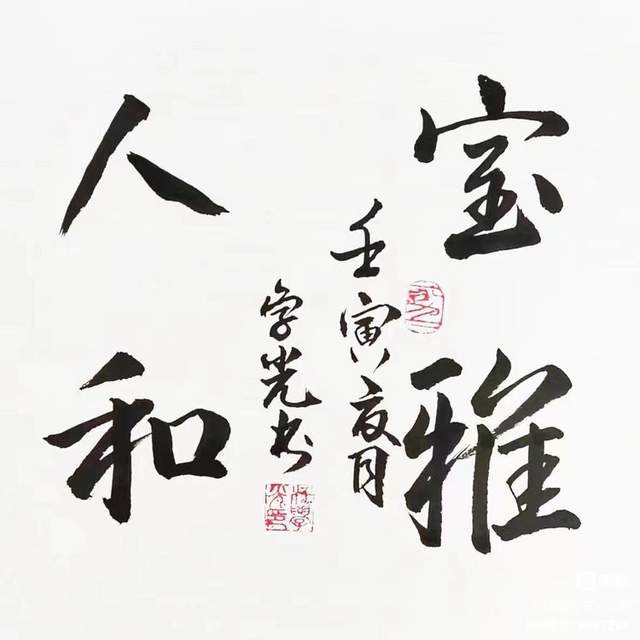 室雅
人和
壬寅夏月
学光书